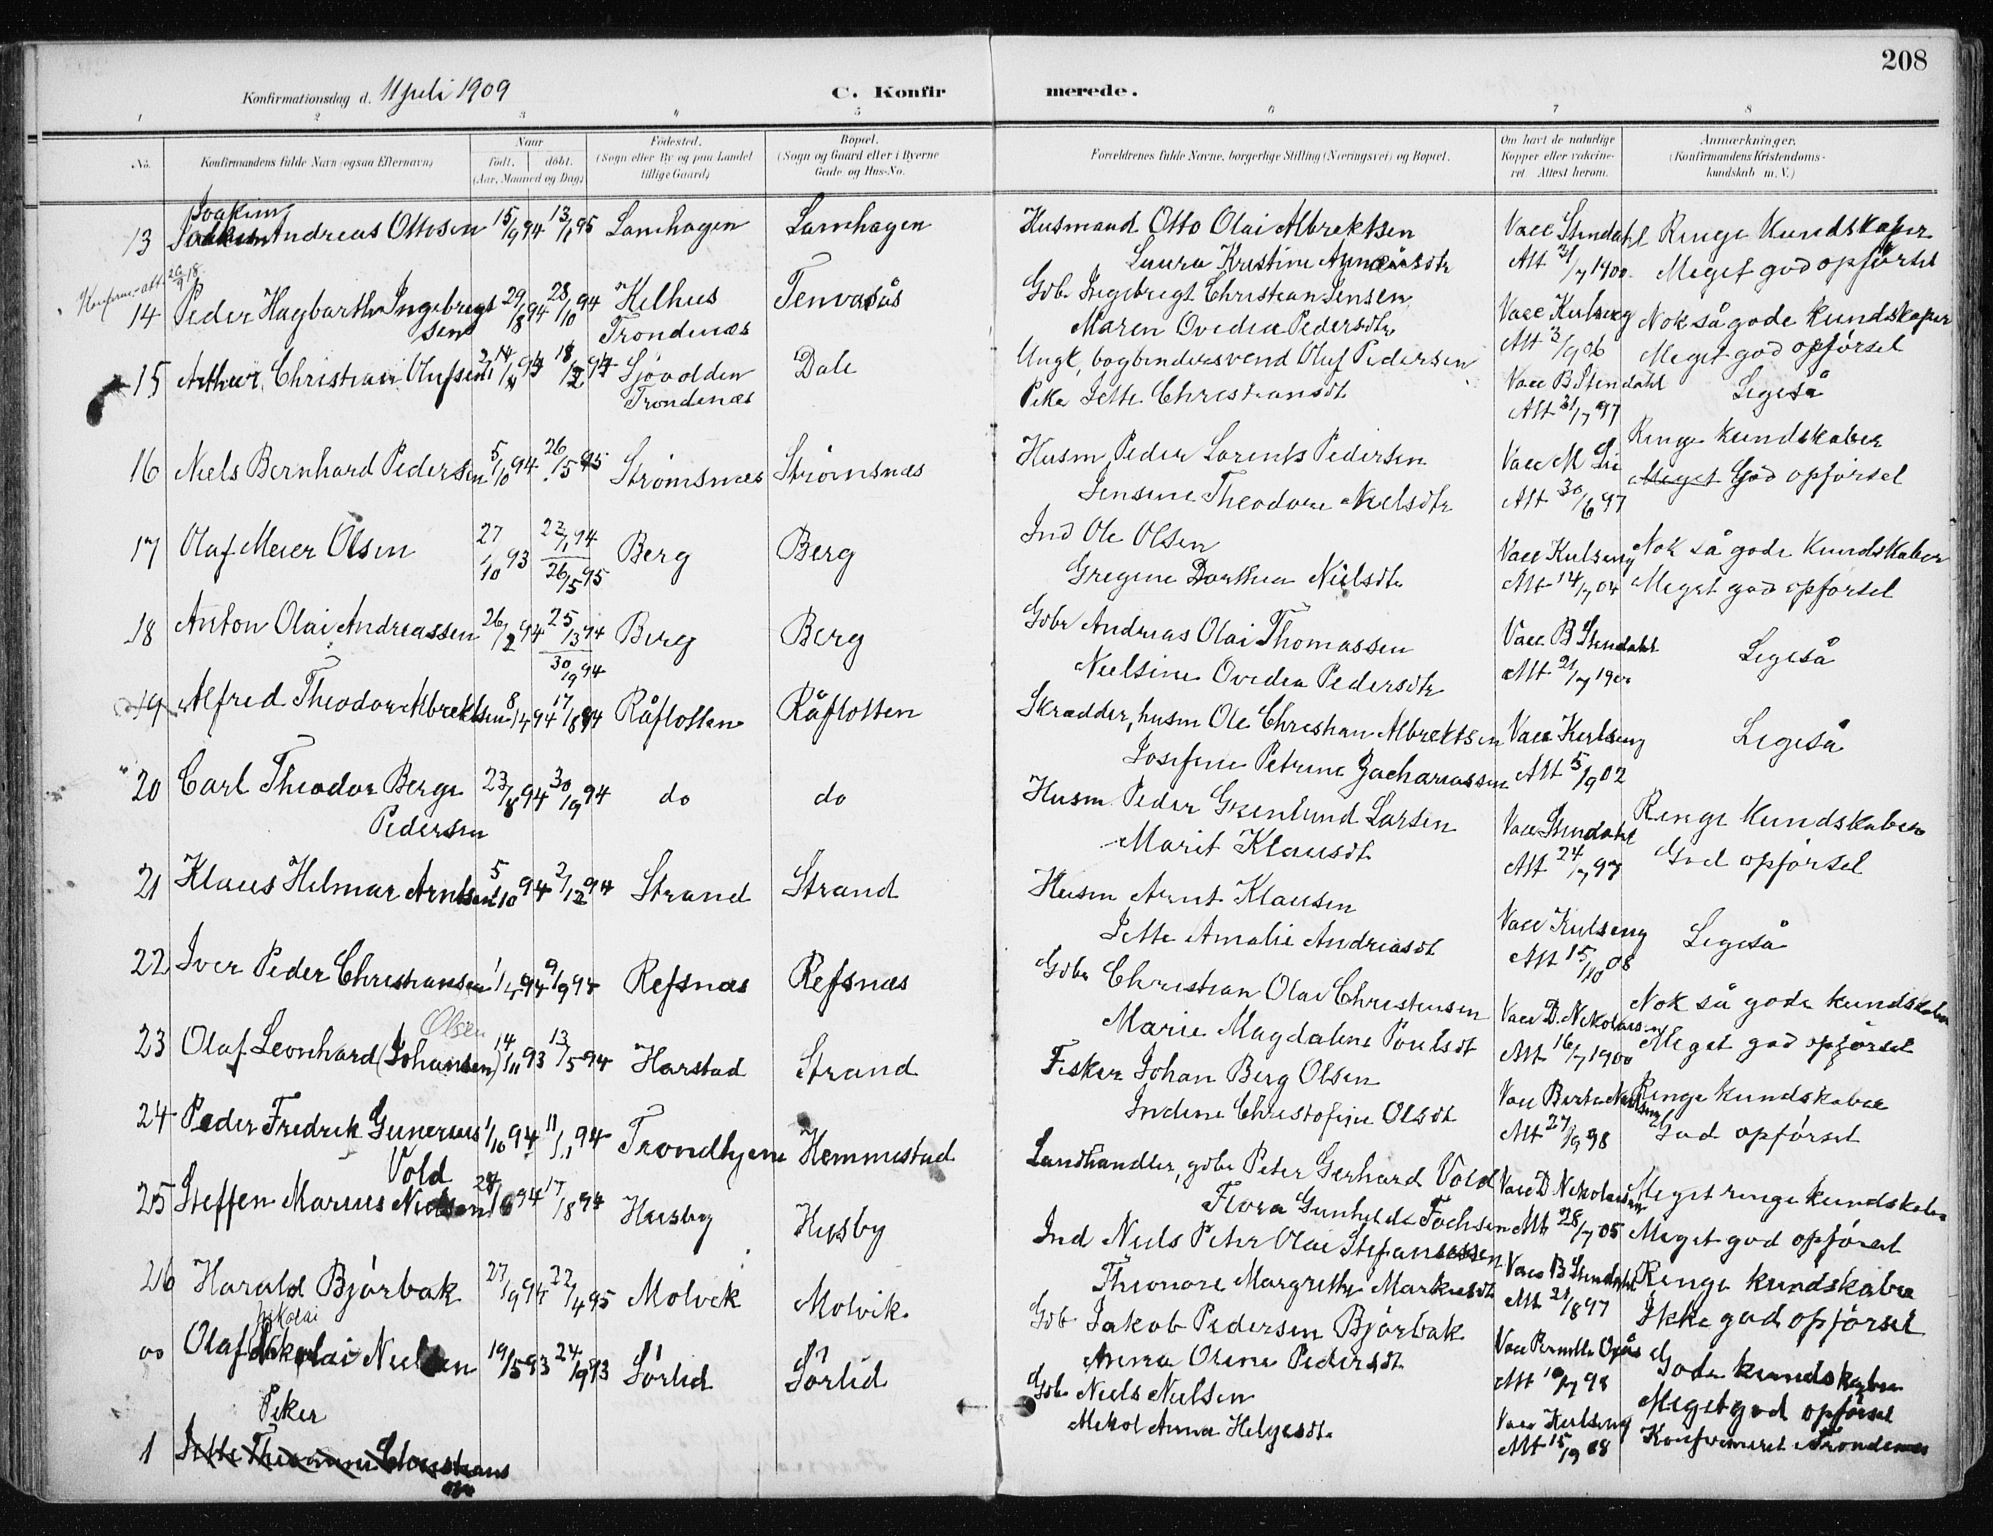 208
Konfirmationsdag d. 11 juli 1909
C. Konfirmerede.
1 2 3 4 5 6 7 8
No. Konfirmandens fulde Navn (ogsaa Efternavn) Naar født. døbt. (Aar, Maaned og Dag) Fødested. (Sogn eller By og paa Landet tillige Gaard) Bopæl. (Sogn og Gaard eller i Byerne Gade og Hus-No. Forældrenes fulde Navne, borgerlige Stilling (Næringsvei) og Bopæl. Om havt de naturlige Kopper eller vakcineret. Attest herom. Anmærkninger. (Konfirmandens Kristendomskundskab m. V.)
Joakim
13 Andreas Ottosen 15/9 94 13/1 95 Lamhagen Lamhagen Husmand Otto Olai Albrektsen Vacc Stendahl Ringe Kundskaper
Laura Kristine Att 31/7 1900 Meget god opførsel
14 Peder Hagbarth Ingebrigtsen 29/8 94 28/10 94 Kilhus Trondenæs Tennvasås Gdbr Ingebrigt Christian Jensen Vacc Kulseng Nok så gode kundskaper
Maren Ovedia Pedersdtr Att 3/9 06 Meget god opførsel
15 Arthur Christian Olufsen Sjøvolden Trondenæs Dale Ungk, bogbindersvend Oluf Pedersen Vacc B Stendahl Ligeså
Pike Jette Christiansdt Att 31/7 97
16 Niels Bernhard Pedersen 5/10 94 26/5 95 Strømsnæs Strømsnæs Husm Peder Lorents Pedersen Vacc M Lie Ringe kundskaber
Jensine Theodore Nielsdtr Att 30/6 97 Meget God opførsel
17 Olaf Meier Olsen 27/10 93 26/5 95 Berg Berg Ind Ole Olsen Vacc Kulseng Nok så gode kundskaber
Gregine Dorthea Nielsdtr Att 14/7 04 Meget god opførsel
18 Anton Olai Andreassen 26/2 94 25/3 94 30/9 94 Berg Berg Gdbr Andreas Olai Thomassen Vacc B Stendahl Ligeså
Nielsine Ovedia Pedersdtr Att 21/7 1900
19 Alfred Theodor Albrektsen 8/4 94 17/8 94 Råflotten Råflotten Skrædder, husm Ole Christian Albrektsen Vacc Kulseng Ligeså
Josefine Petrine Zachariassen Att 5/9 02
20 Carl Theodor Berge Pedersen 23/8 94 30/9 94 do do Husm Peder Grønlund Larsen Vacc Stendahl Ringe kundskaber
Marit Klausdt Att 24/7 97 God opførsel
21 Klaus Hilmar Arntsen 5/10 94 2/12 94 Strand Strand Husm Arnt Klausen Vacc Kulseng Ligeså
Jette Amalie Andreasdt Att 15/10 08
22 Iver Peder Christiansen 1/4 94 9/9 94 Refsnæs Refsnæs Gdbr Christian Olai Christensen Vacc D. Nikolaisen Nok så gode kundskaber
Marie Magdalene Poulsdt Att 16/7 1900 Meget god opførsel
Olsen
23 Olaf Leonhard (Johansen) 14/11 93 13/5 94 Harstad Strand Fisker Johan Berg Olsen Vacc Ringe kundskaber
Indine Christofine Olsdt Att 27/9 98 God opførsel
24 Peder Fredrik Gunerius Vold 1/10 94 11/11 94 Trondhjem Hemmestad Landhandler, gdbr Peter Gerhard Vold Vacc D. Nikolaisen Meget ringe kundskaber
Flora Gunhilda Fochsen Att 28/7 05 Meget god opførsel
25 Steffen Marius Nielsen 24/6 94 17/8 94 Husby Husby Ind Niels Peter Olai Stefanussen Vacc B Stendahl Ringe kundskaber
Theonore Margrethe Markusdt Att 21/8 97 Ikke god opførsel
26 Harald Bjørbak 27/9 94 22/4 95 Molvik Molvik Gdb Jakob Pedersen Bjørbak Vacc Pernille Gode kundskaber
Anna Oline Pedersdt Att 10/7 98 Meget god opførsel
Nikolai
oo Olaf Nikolai Nielsen 19/5 93 24/9 93 Sørlid Sørlid Gdb Niels Nielsen Vacc Kulseng Konfirmeret Trondenæs
Mekol Anna Helgesdt Att 15/9 08
Piker
1 Jette